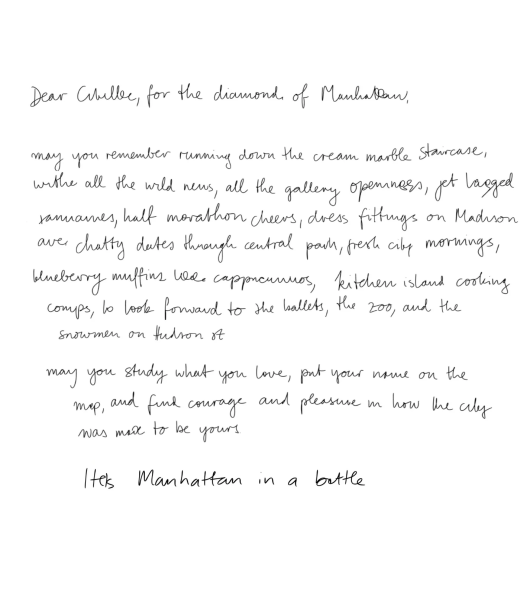 Dear Cibelle, for the diamond of Manhattan,
may you remember running down the cream marble staircase,
withe all the wild news, all the gallery openings, jet lagged
half marathon cheers, dress fittings on Madison
ave chatty dates through central park, fresh city mornings,
blueberry muffins cappuccinos, kitchen island cooking
comps, to look forward to the ballets, the zoo, and the
snowmen on Hudson st
may you study what you love, put your name on the
map, and find courage and pleasure in how the city
was made to be yours
Manhattan in a bottle